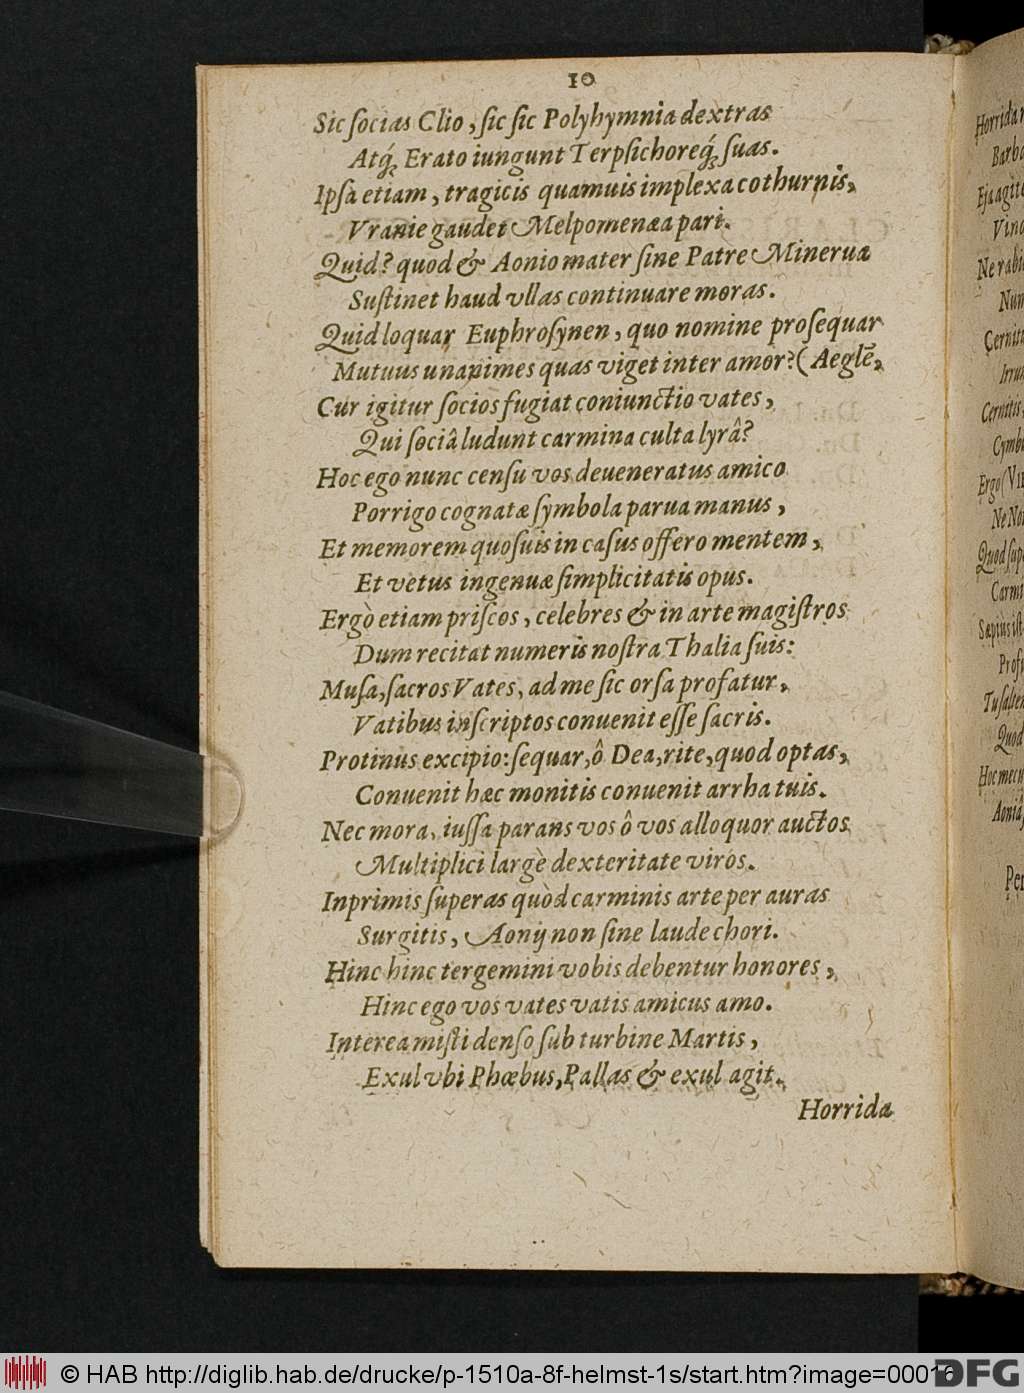 10
Sic ſocias Clio, ſic ſic Polyhymnia dextras
Atq́ꝫ Erato iungunt Terpſichoreq́ꝫ ſuas.
Ipſa etiam, tragicis quamuis implexa cothurnis,
Vranie gaudet Melpomenæa pari.
Quid? quod & Aonio mater ſine Patre Minerua
Suſtinet haud vllas continuare moras.
Quid loquar Euphroſynen, quo nomine proſequar
Mutuus unanimes quas viget inter amor? (Aeglē,
Cur igitur ſocios fugiat coniunctio vates,
Qui ſociâ ludunt carmina culta lyrâ?
Hoc ego nunc cenſu vos deueneratus amico
Porrigo cognatæ ſymbola parua manus,
Et memorem quoſuis in caſus offero mentem,
Et vetus ingenuæ ſimplicitatis opus.
Ergò etiam priſcos, celebres & in arte magiſtros
Dum recitat numeris noſtra Thalia ſuis:
Muſa, ſacros Vates, ad me ſic orſa profatur,
Vatibus inſcriptos conuenit eſſe ſacris.
Protinus excipio: ſequar, ô Dea, rite, quod optas,
Conuenit hæc monitis conuenit arrha tuis.
Nec mora, iuſſa parans vos ô vos alloquor auctos
Multiplici largè dexteritate viros.
Inprimis ſuperas quòd carminis arte per auras
Surgitis, Aonij non ſine laude chori.
Hinc hinc tergemini vobis debentur honores,
Hinc ego vos vates vatis amicus amo.
Interea miſti denſo ſub turbine Martis,
Exul vbi Phœbus, Pallas & exul agit.
Horridæ
© HAB http://diglib.hab.de/drucke/p-1510a-8f-helmst-1s/start.htm?image=00016
DFG